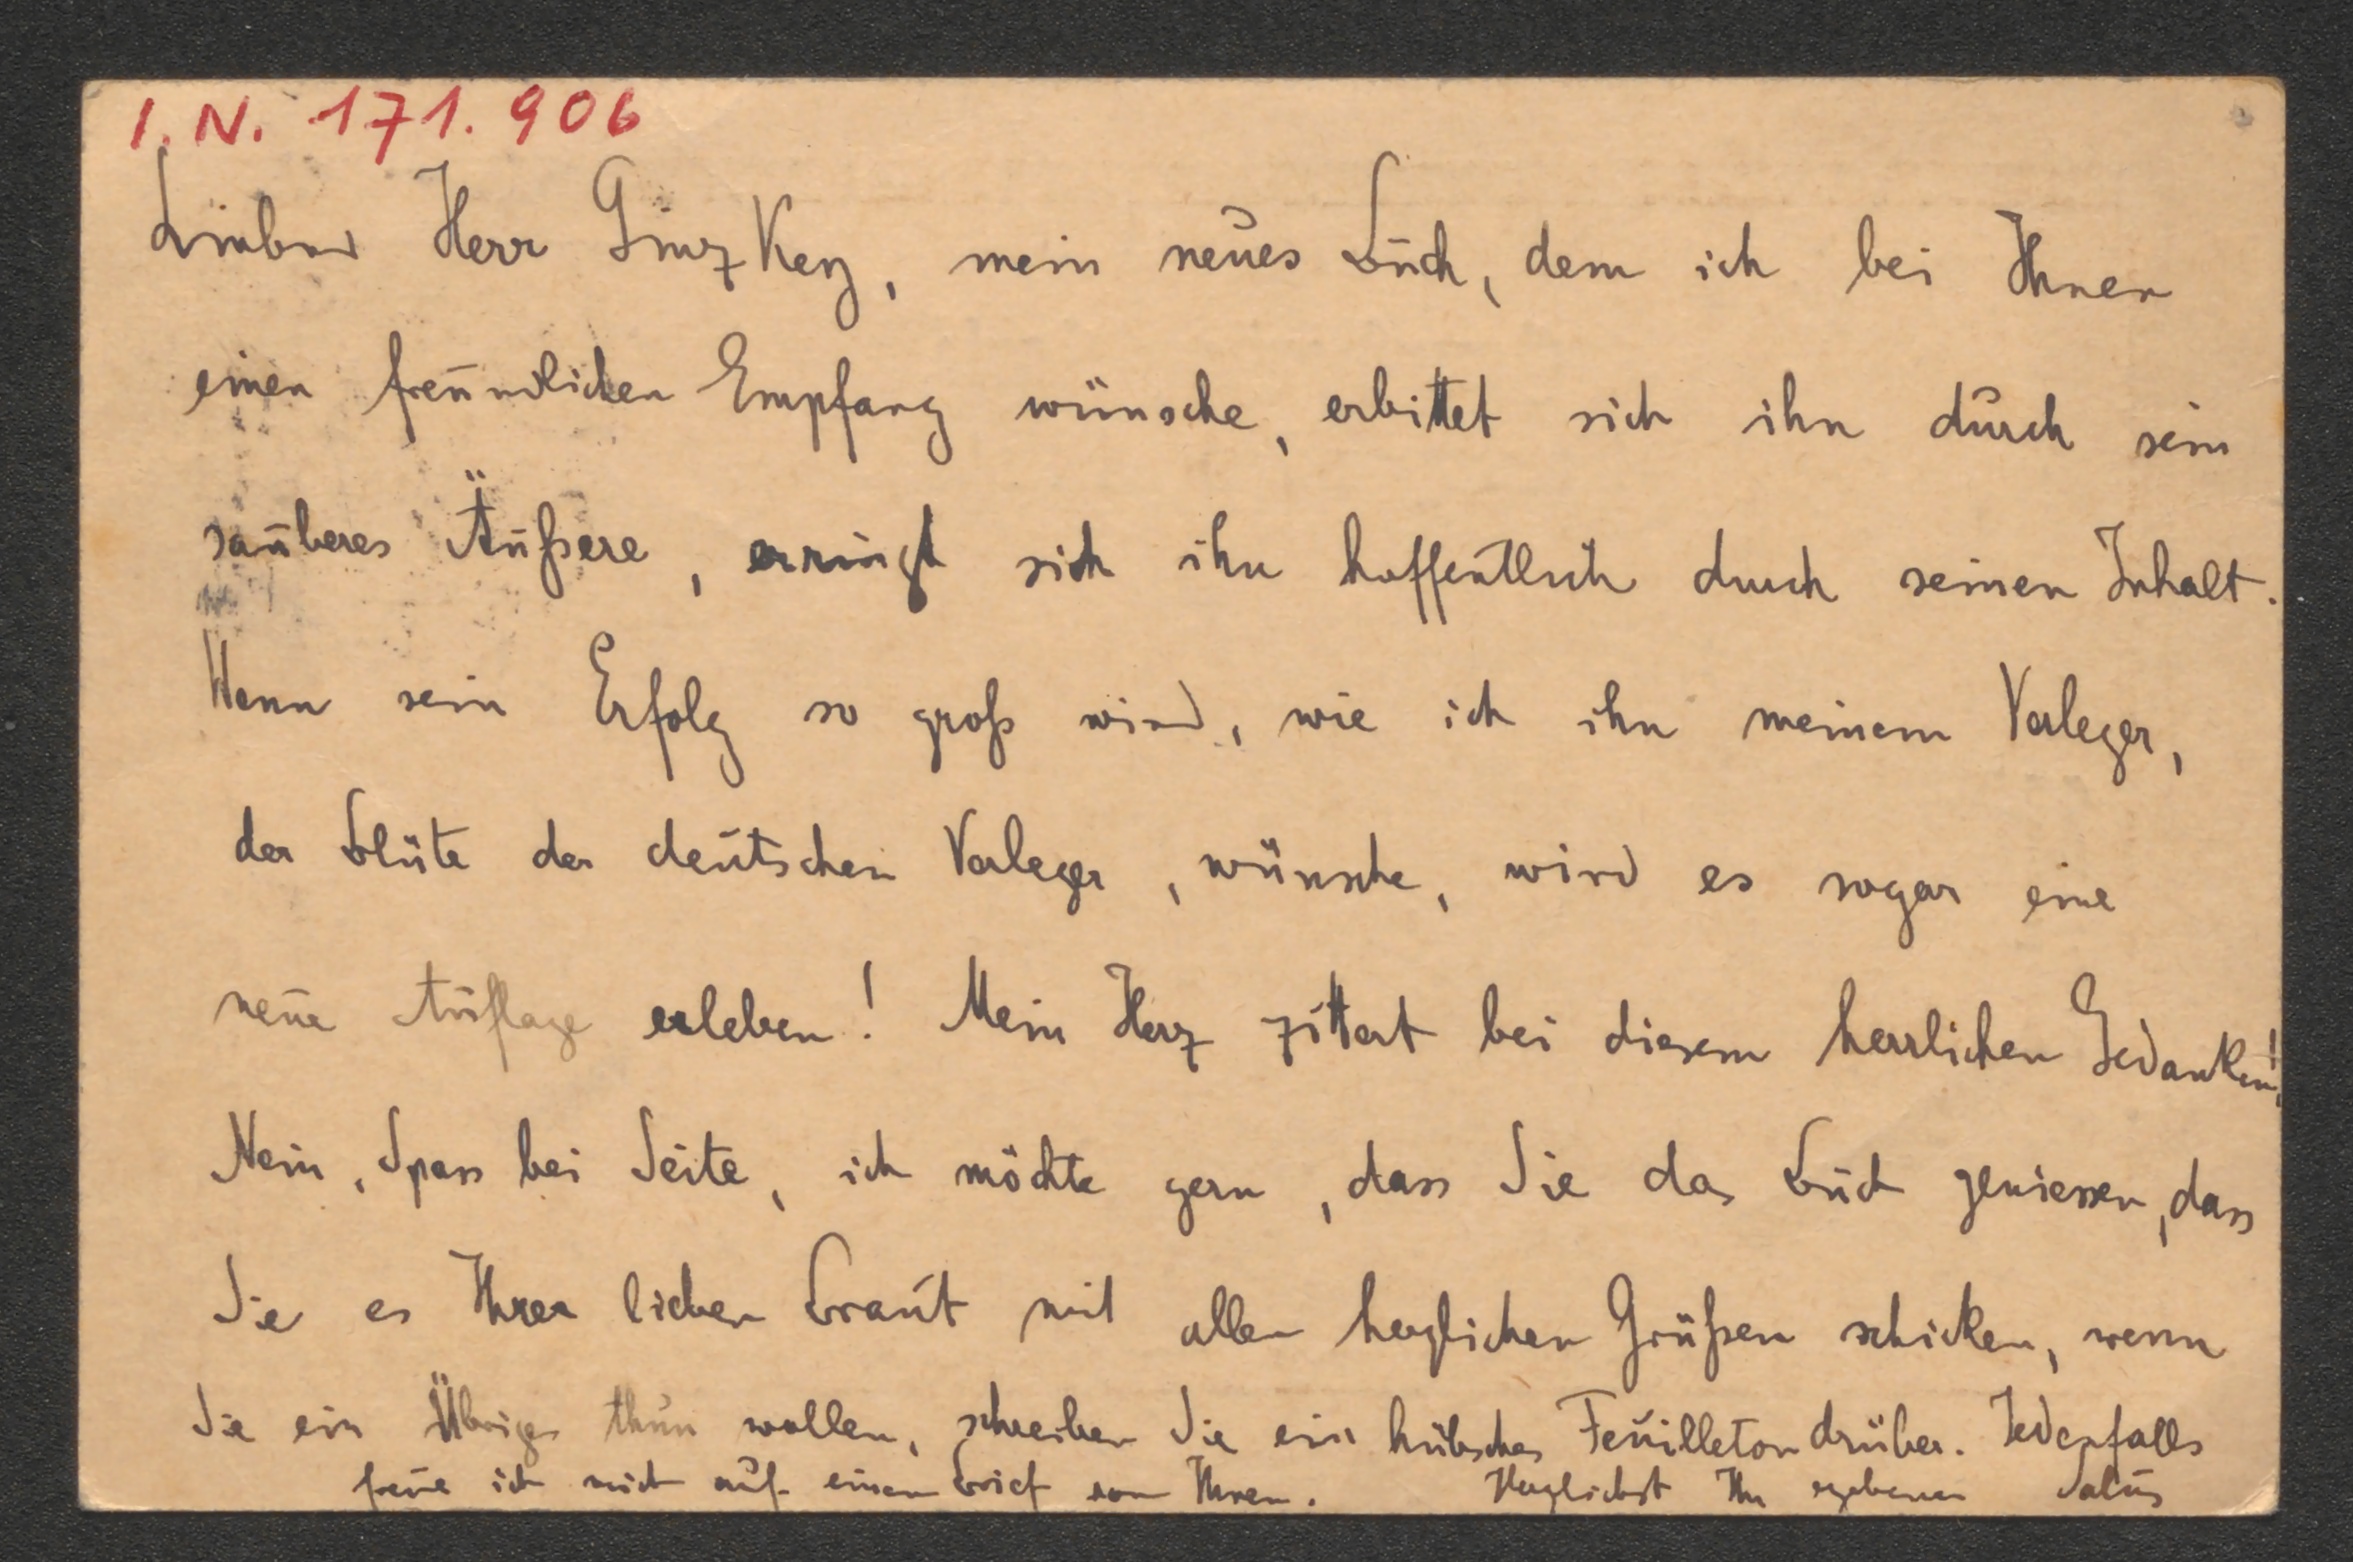 I. N. 171.906
Lieber Herr Ginzkey, mein neues Buch, dem ich bei Ihnen
einen freundlichen Empfang wünsche, erbittet sich ihn durch sein
sauberes Äußere, erringt sich ihn hoffentlich durch seinen Inhalt.
Wenn sein Erfolg so groß wird, wie ich ihn meinem Verleger,
der Blüte der deutschen Verleger, wünsche, wird es sogar eine
neue Auflage erleben! Mein Herz zittert bei diesem herrlichen Gedanken!
Nein, Spass bei Seite, ich möchte gern, dass Sie das Buch geniessen, dass
Sie es Ihrer lieben Braut mit allen herzlichen Grüßen schicken, wenn
Sie ein Übriges thun wollen, schreiben Sie ein hübsches Feuilleton drüber. Jedenfalls
freue ich mich auf einen Brief von Ihnen. Herzlichst Ihr ergebener Salus